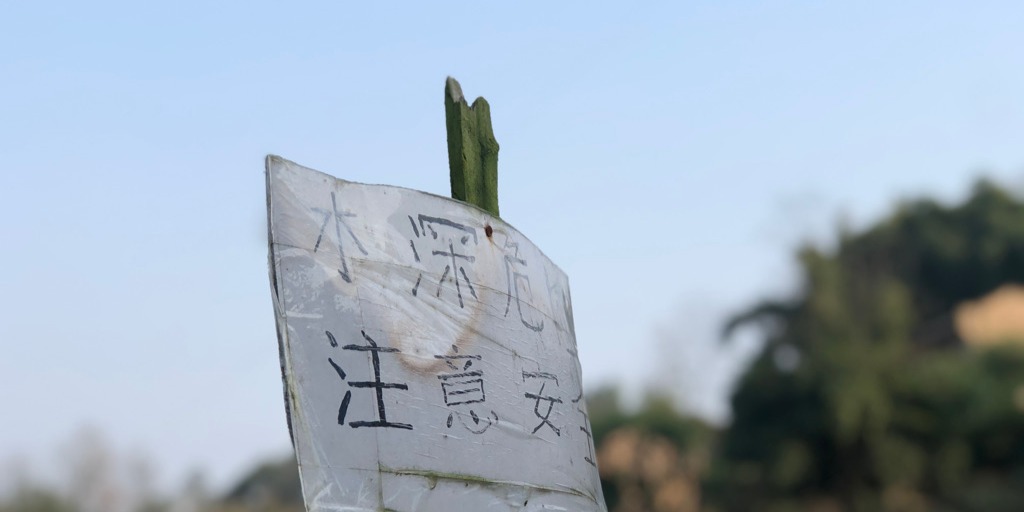 水深危险
注意安全